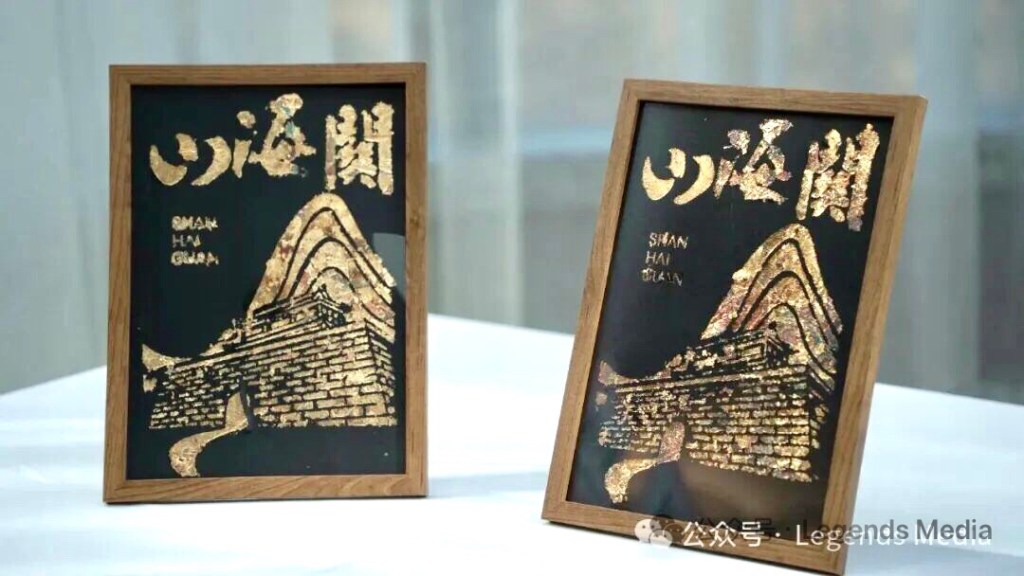 山海關
SHAN
HAI
GUAN
山海關
SHAN
HAI
GUAN
公众号 · Legends Media